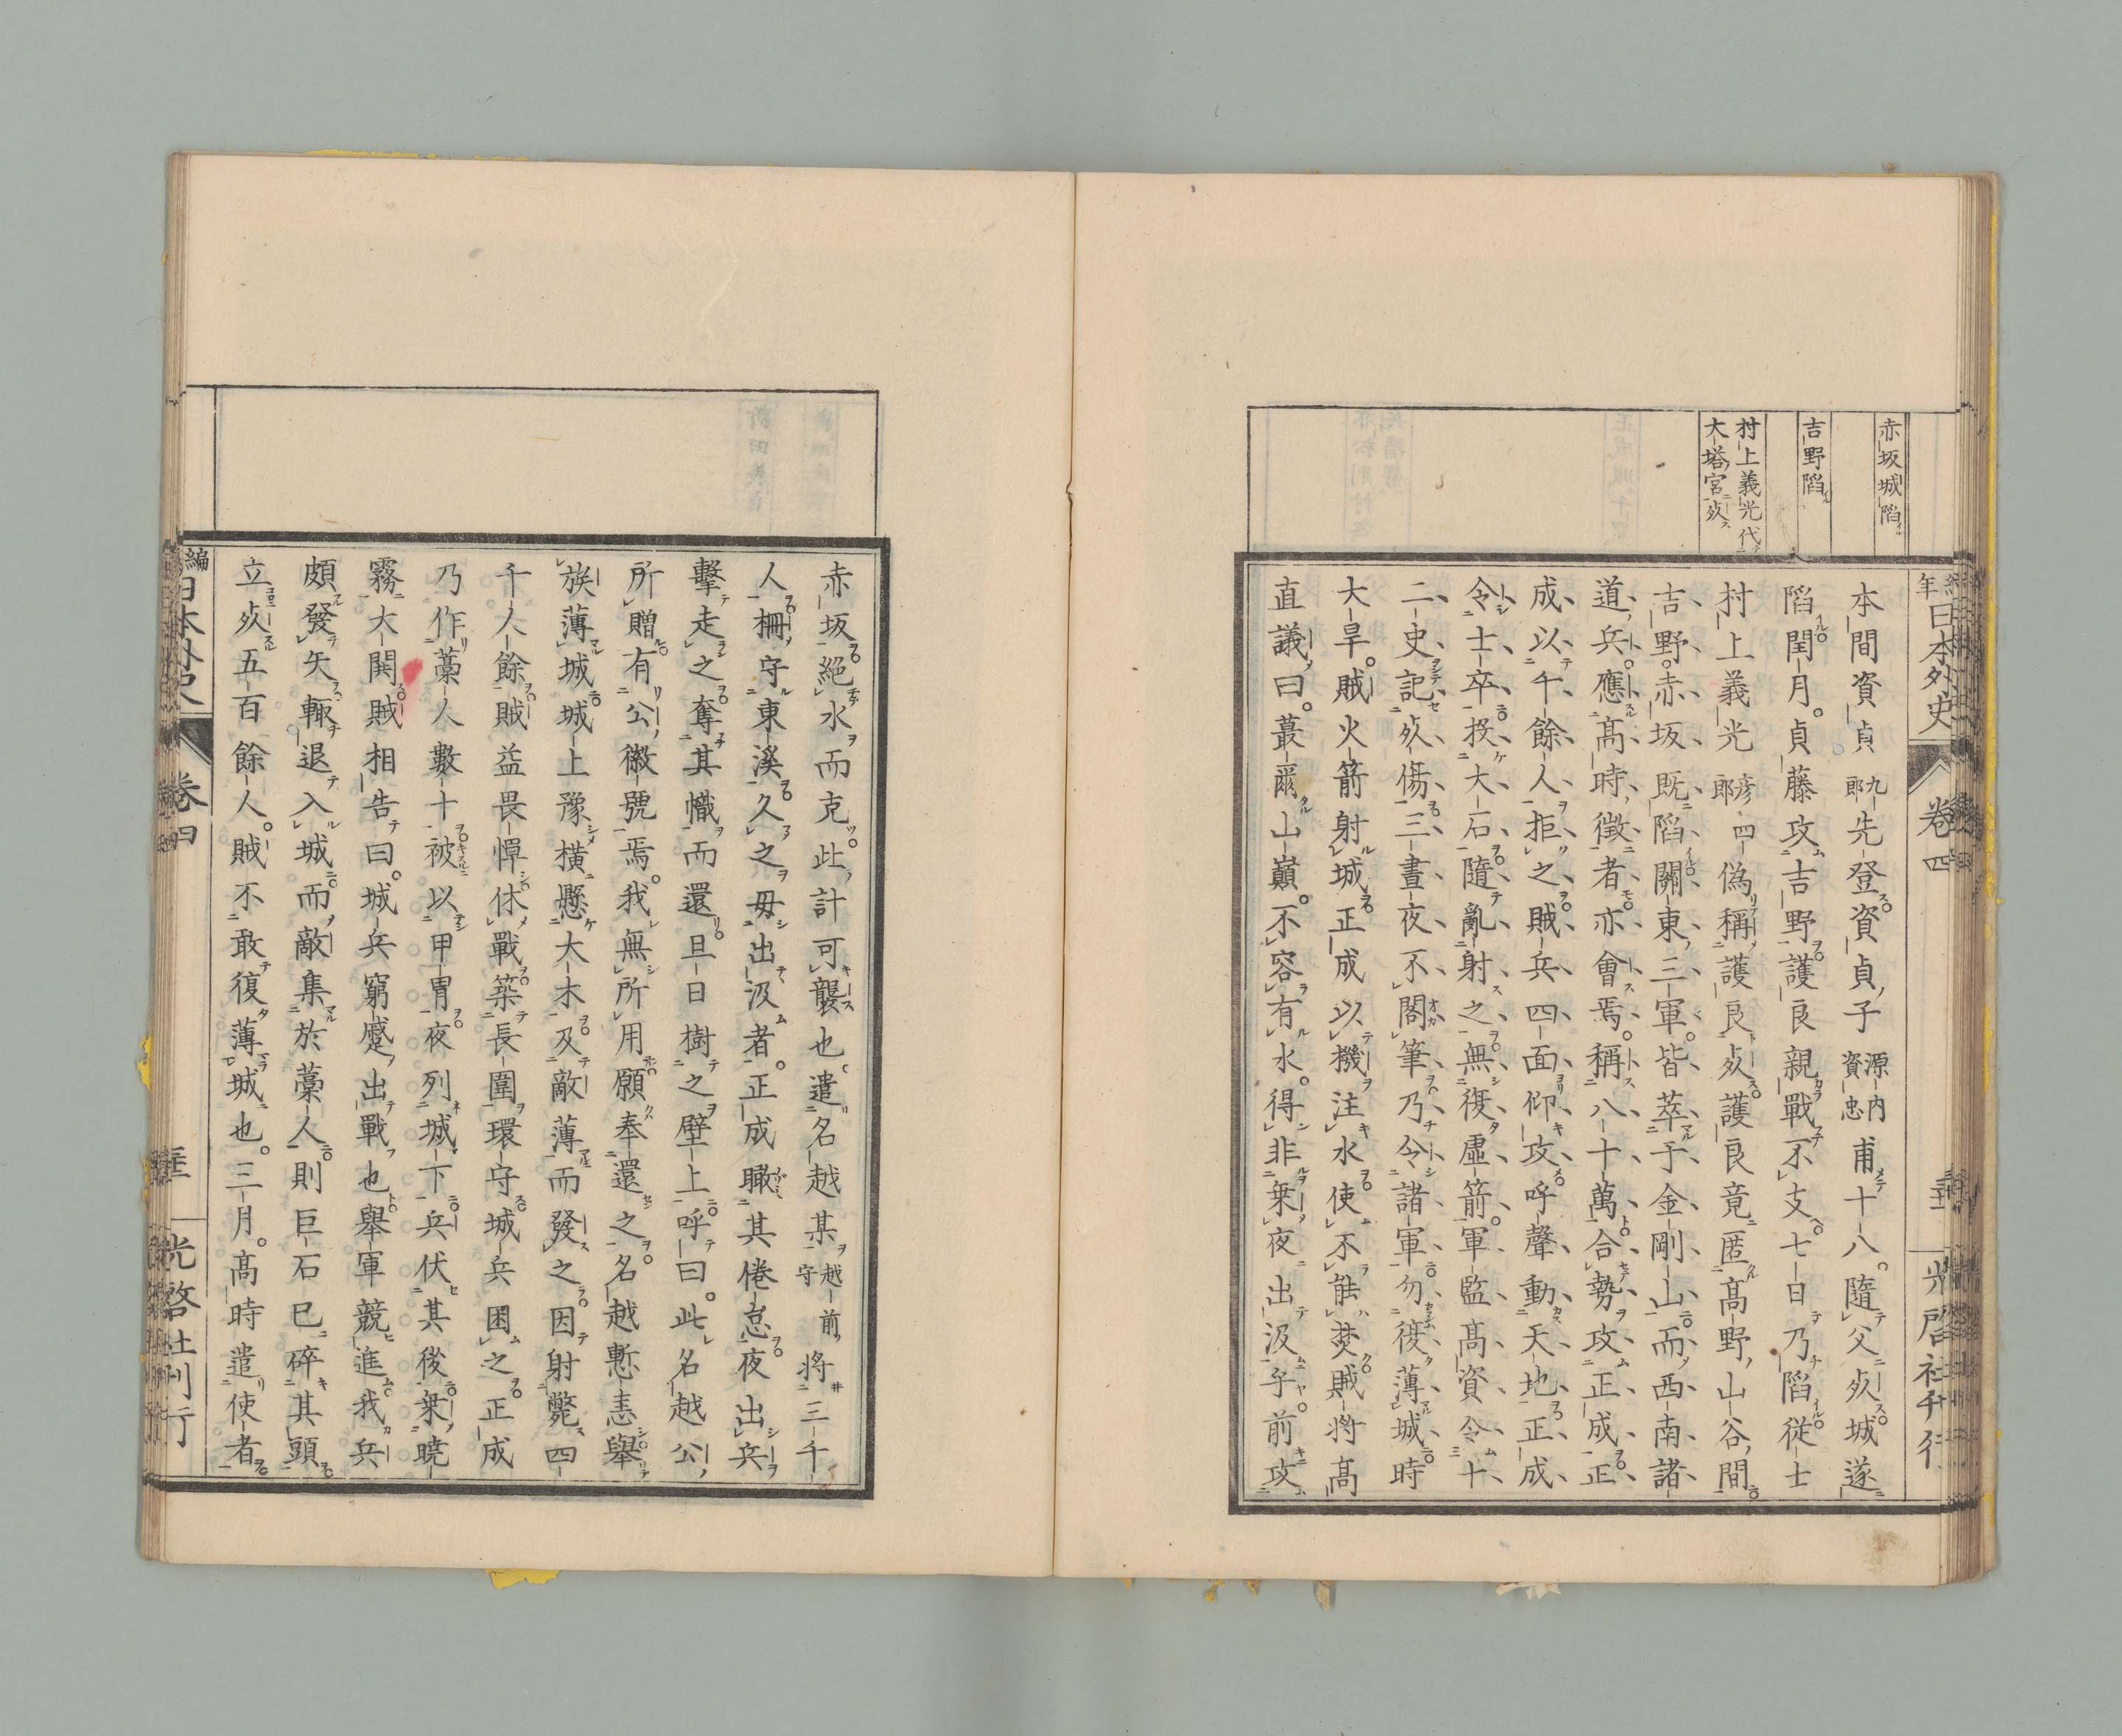 赤坂城陷
吉野陷
村上義光代
大塔宮死
本間資貞九郎先登資貞子源內資忠甫十八。隨父死城遂
陷閏月。貞藤攻吉野護良親戰不支。七日乃陷從士
村上義光彥四郎偽稱護良死護良竟匿高野山谷間
吉野。赤坂既陷關東三軍。皆萃于金剛山而西南諸
道兵應高時徵者亦會焉。稱八十萬合勢攻正成正
成以千餘人拒之賊兵四面仰攻呼聲動天地正成
令士卒投大石隨亂射之無復虛箭。軍監高資令十
二史記死傷三晝夜不閣筆乃令諸軍勿復薄城時
大旱。賊火箭射城正成以機注水使不能焚賊將高
直議曰。蕞爾山巔。不容有水。得非乘夜出汲乎。前攻
赤坂絕水而克。此計可襲也遣名越某越前守將三千
人柵守東溪久之毋出汲者。正成瞰其倦怠夜出兵
擊走之奪其幟而還。旦日樹之壁上呼曰。此名越公
所贈有公徽號焉。我無所用願奉還之名越慙恚舉
族薄城城上豫橫懸大木及敵薄而發之因射斃四
千人餘賊益畏憚休戰築長圍環守城兵困之。正成
乃作藁人數十被以甲冑夜列城下兵伏其後乘曉
霧大鬨賊相告曰。城兵窮蹙出戰也舉軍競進我兵
頗發矢輙退入城而敵集於藁人則巨石已碎其頭
立死五百餘人。賊不敢復薄城也。三月。高時遣使者
年日本外史 卷四 光啓社刊行
編日本外史 卷四 光啓社刊行